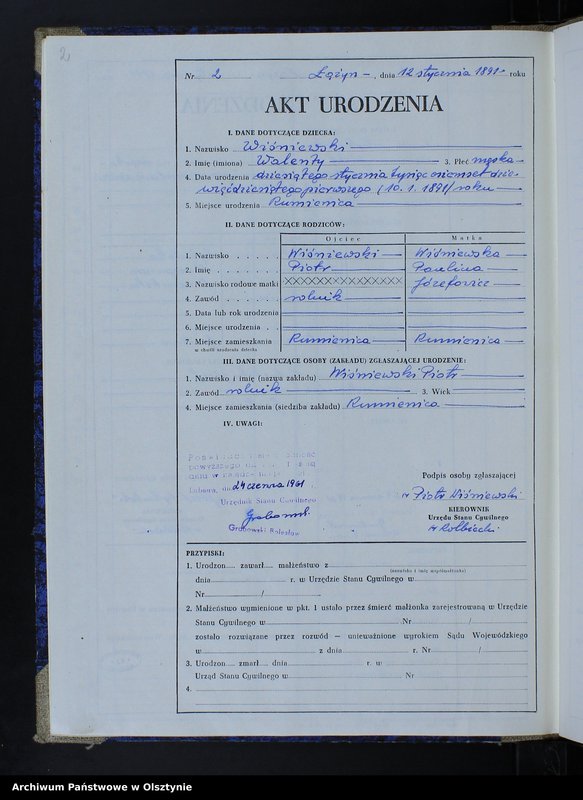 2
Nr 2 Łążyn –, dnia 12 stycznia 1891 – roku
AKT URODZENIA
I. DANE DOTYCZĄCE DZIECKA:
1. Nazwisko Wiśniewski
2. Imię (imiona) Walenty 3. Płeć męska
4. Data urodzenia dziesiątego stycznia tysiąc osiemset dzie-
więćdziesiątego pierwszego (10. 1. 1891) roku
5. Miejsce urodzenia Rumienica
II. DANE DOTYCZĄCE RODZICÓW:
Ojciec Matka
1. Nazwisko Wiśniewski Wiśniewska
2. Imię Piotr Paulina
3. Nazwisko rodowe matki XXXXXXXXXXXX Józefowicz
4. Zawód rolnik
5. Data lub rok urodzenia
6. Miejsce urodzenia
7. Miejsce zamieszkania Rumienica Rumienica
w chwili urodzenia dziecka
III. DANE DOTYCZĄCE OSOBY (ZAKŁADU) ZGŁASZAJĄCEJ URODZENIE:
1. Nazwisko i imię (nazwa zakładu) Wiśniewski Piotr
2. Zawód rolnik 3. Wiek
4. Miejsce zamieszkania (siedziba zakładu) Rumienica
IV. UWAGI:
powyższego
Lubawa, dnia 24 czerwca 1961
Urzędnik Stanu Cywilnego
Grabowski Bolesław
Podpis osoby zgłaszającej
Piotr Wiśniewski
KIEROWNIK
Urzędu Stanu Cywilnego
PRZYPISKI:
1. Urodzon zawarł małżeństwo z
(nazwisko i imię współmałżonka)
dnia r. w Urzędzie Stanu Cywilnego w
Nr /
2. Małżeństwo wymienione w pkt. 1 ustało przez śmierć małżonka zarejestrowaną w Urzędzie
Stanu Cywilnego w Nr /
zostało rozwiązane przez rozwód – unieważnione wyrokiem Sądu Wojewódzkiego
w z dnia r. Nr /
3. Urodzon zmarł dnia r. w
Urząd Stanu Cywilnego w Nr
4.
Archiwum Państwowe w Olsztynie